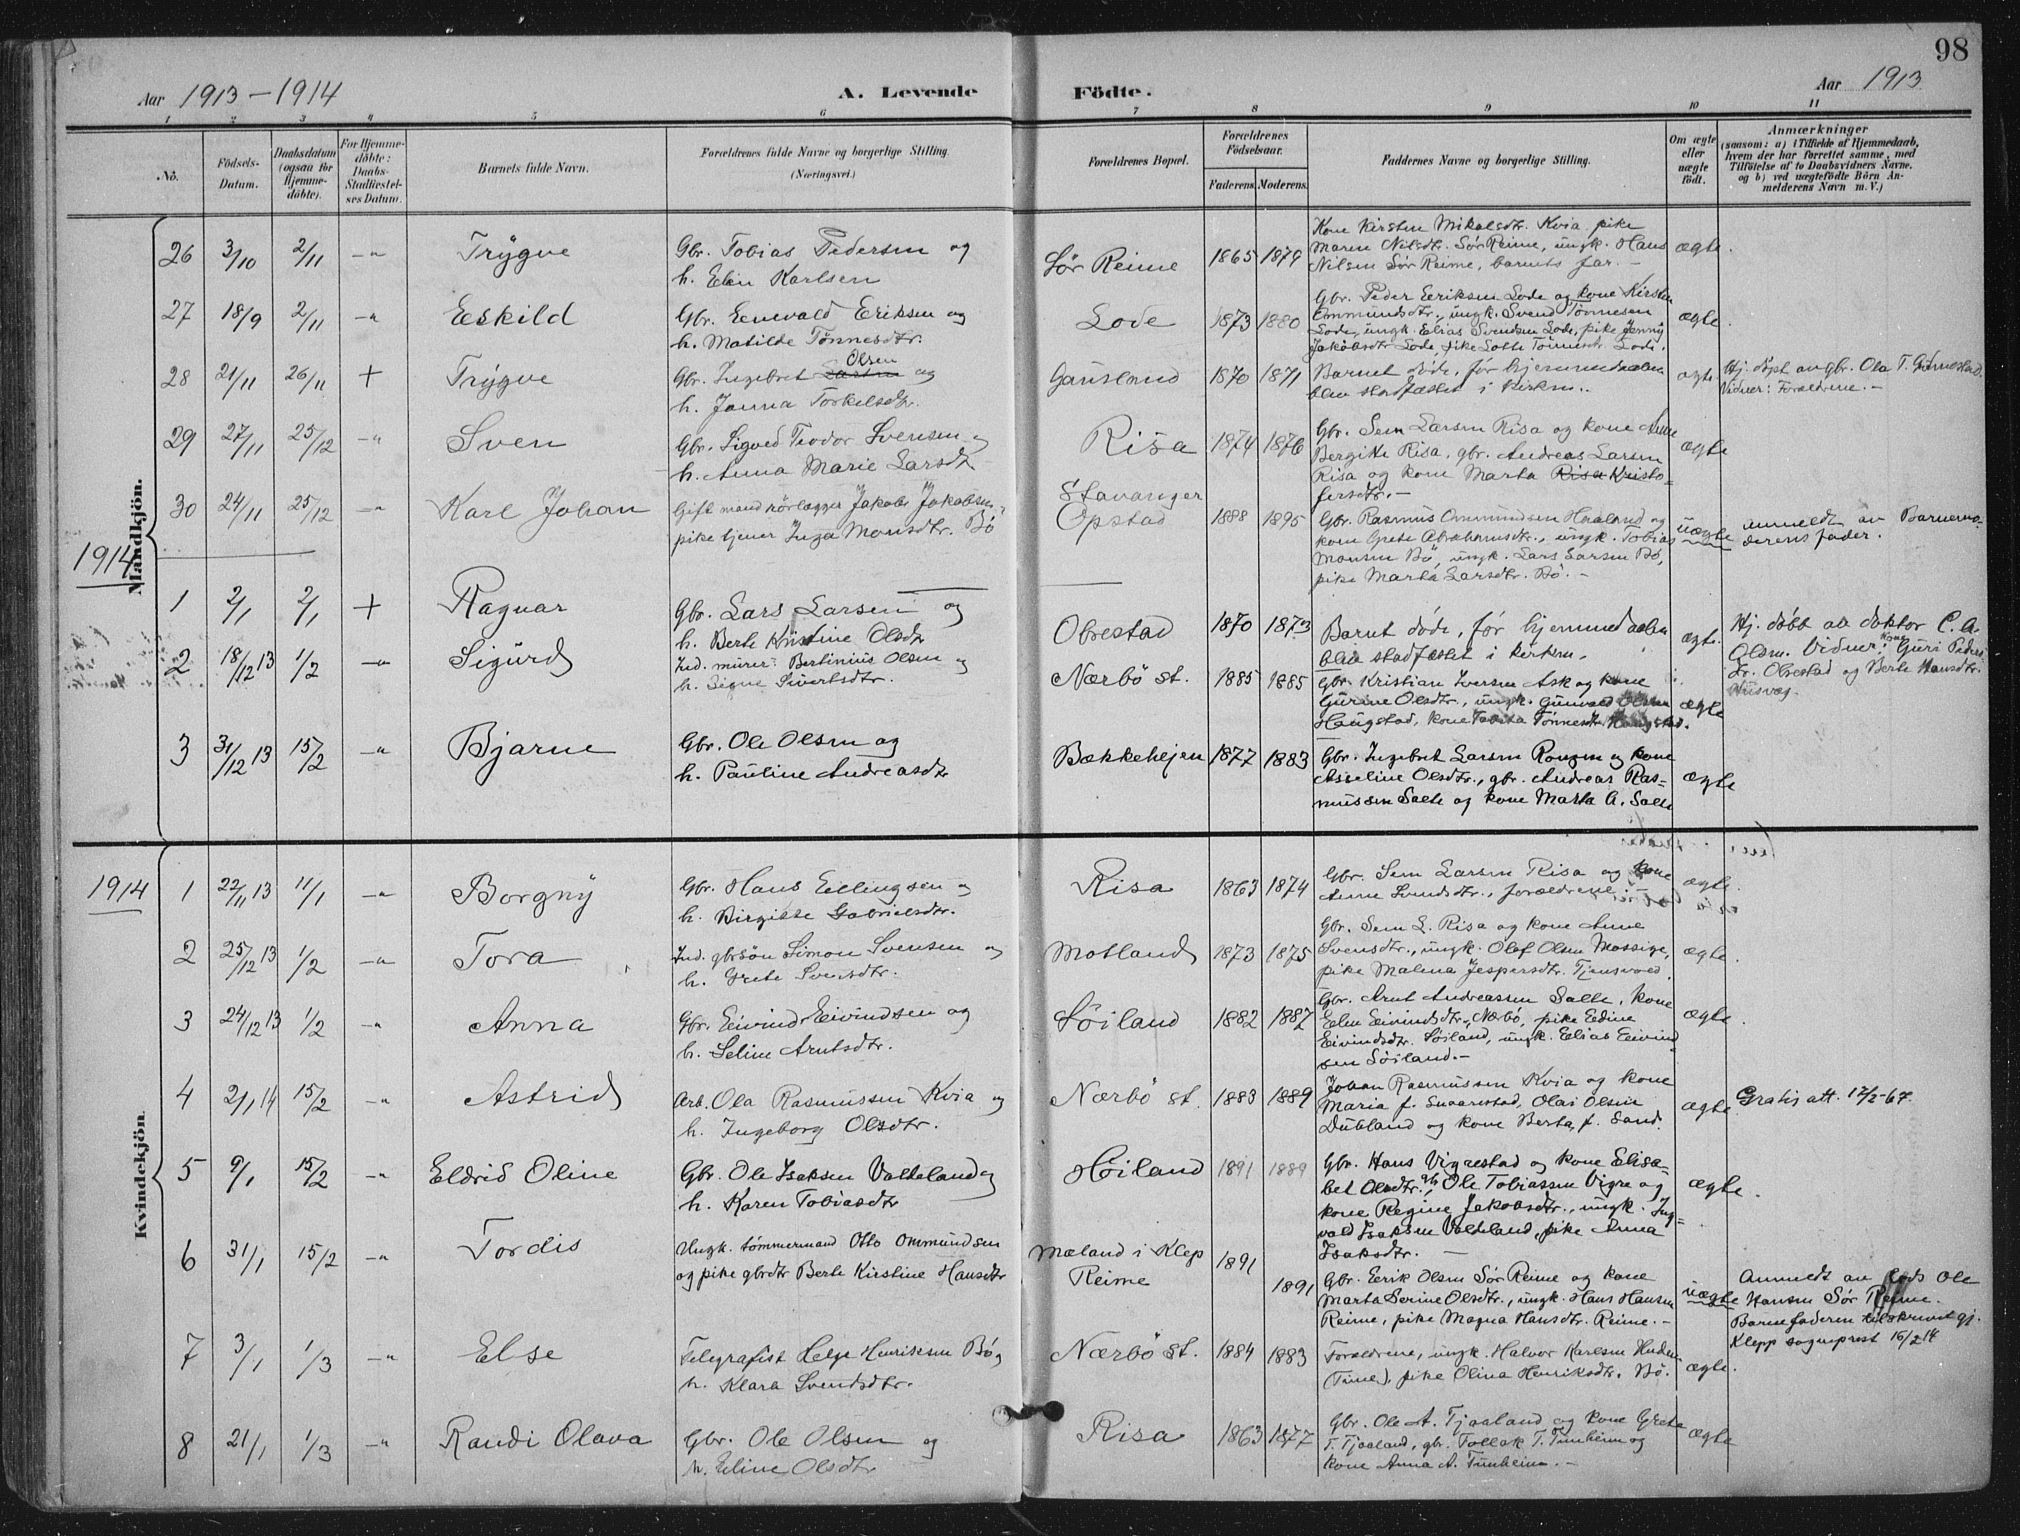 98
Aar 1913-1914 A. Levende Födte. Aar 1913
1 2 3 4 5 6 7 8 9 10 11
No. Födsels-Datum. Daabsdatum (ogsaa for Hjemmedöbte). For Hjemmedöbte: Daabs-Stadfæstelses Datum. Barnets fulde Navn. Forældrenes fulde Navne og borgerlige Stilling. (Næringsvei.) Forældrenes Bopæl. Forældrenes Födselsaar. Faderens. Moderens. Faddernes Navne og borgerlige Stilling. Om ægte eller uægte födt. Anmærkninger (saasom: a) i Tilfælde af Hjemmedaab, hvem der har forrettet samme, med Tilföielse af to Daabsvidners Navne. og b) ved uægtefödte Börn Anmelderens Navn m. V.)
Mandkjön.
26 3/10 2/11 -"- Trygve Gbr. Tobias Pedersen og
h. Elin Karlsen Sør Reime 1865 1879
Kone Kirsten Mikalsdtr. Kvia pike
Maren Nilsdtr. Sør Reime, ungk. Hans
Nilsen Sør Reime, barnets far. - ægte.
27 18/9 2/11 -"- Eskild Gbr. Enevald Eriksen og
h. Matilde Tönnesdtr. Lode 1873 1880
Gbr. Peder Eeriksen Lode og kone Kirsten
Ommundsdtr., ungk. Svend Tönnesen
Lode, ungk. Elias Svendsen Lode, pike Jenny
Jakobsdtr Lode, pike Lotte Tönnesdtr. Lode. ægte.
28 21/11 26/11 + Trygve Gbr. Ingebret Larsen Olsen og
h. Janna Torkelsdtr. Gausland 1870 1871
Barnet døde, før hjemmedaaben
blev stadfæstet i kirken. ægte Hj. døpt av gbr. Ola T.
Vidner: Forældrene. -
29 27/11 25/12 -"- Sven Gbr. Sigved Teodor Svensen og
h. Anna Marie Larsdtr Risa 1874 1876
Gbr. Sem Larsen Risa og kone Anne
Bergitte Risa, gbr. Andreas Larsen
Risa og kone Marta Risa Kristo-
fersdtr. - ægte
30 24/11 25/12 -"- Karl Johan Gift mand rörlægger Jakob Jakobsen,
pike tjener Inga Monsdtr. Bö Stavanger
Opstad 1888 1895
Gbr. Rasmus Ommundsen Haaland og
kone Grete Abrahamsdtr., ungk. Tobias
Monsen Bö, ungk. Lars Larsen Bö,
pike Marta Larsdtr. Bö. - uægte anmeldt av Barnemo-
derens fader.
1914
1 2/1 2/1 + Ragnar Gbr. Lars Larsen og
h. Berte Kristine Olsdtr Obrestad 1870 1873
Barnet døde, før hjemmedaaben
blev stadfæstet i kirken. ægte. Hj. døbt av doktor C. A.
Olsen. Vidner: Kone Guri Peders-
dr. Obrestad og Berte Hansdtr.
Husvæg.
2 18/12 13 1/2 -"- Sigurd Ind. murer Bertinius Olsen og
h. Signe Sivertsdtr. Nærbö st. 1885 1885
Gbr. Kristian Iversen Ask og kone
Gurine Olsdtr., ungk. Gunvald Olsen
Haugstad, kone Tabita Tönnesdtr. Haugstad. ægte
3 31/12 13 15/2 -"- Bjarne Gbr. Ole Olsen og
h. Pauline Andreasdtr Bækkehejen 1877 1883
Gbr. Ingebret Larsen Rongen og kone
Asseline Olsdtr., gbr. Andreas Ras-
mussen Salte og kone Marta A. Salte ægte
Kvindekjön.
1914
1 22/11 13 11/1 -"- Borgny Gbr. Hans Ellingsen og
h. Birgitte Gabrielsdtr. Risa 1863 1874
Gbr. Sem Larsen Risa og kone
Anne Svendsdtr., forældrene. - ægte.
2 25/12 13 1/2 -"- Tora Ind. gbrsön Simon Svensen og
h. Grete Svensdtr. Motland 1873 1875
Gbr. Sem L. Risa og kone Anne
Svensdtr., ungk. Olaf Olsen Mossige,
pike Malena Jespersdtr. Tjensvold. ægte.
3 24/12 13 1/2 -"- Anna Gbr. Eivind Eivindsen og
h. Seline Arntsdtr. Söiland 1882 1887
Gbr. Arnt Andreassen Salte, kone
Elen Eivindsdtr. Nærbö, pike Edina
Eivindsdtr. Söiland, ungk. Elias Eivind-
sen Söiland. - ægte.
4 2/1 14 15/2 -"- Astrid Arb. Ola Rasmussen Kvia og
h. Ingeborg Olsdtr. Nærbö st. 1883 1889
Johan Rasmussen Kvia og kone
Maria f. Snarestad, Olai Olsen
Dubland og kone Berta f. Sand. ægte. Gratis att. 12/2-67.
5 9/1 15/2 -"- Eldrid Oline Gbr. Ole Isaksen Valteland og
h. Karen Tobiasdtr Höiland 1891 1889
Gbr. Hans Vigrestad og kone Elisa-
bet Olsdtr., gb. Ole Tobiassen Vigre og
kone Regine Jakobsdtr., ungk. Ing-
vald Isaksen Valteland, pike Anna
Isaksdtr. - ægte.
6 31/1 15/2 -"- Tordis Ungk. tömmermand Otto Ommundsen
og pike gbrdtr Berte Kirstine Hansdtr Mæland i Klep
Reime 1891 1891
Gbr. Eerik Olsen Sör Reime og kone
Marta Serine Olsdtr., ungk. Hans Hansen
Reime, pike Magna Hansdtr. Reime. - uægte Anmeldt av Ole
Hansen Sör Reime.
Barnefaderen tilskrevet gj.
Klepp sogneprest 16/2 14
7 3/1 1/3 -"- Else Telegrafist Helge Henriksen Bö og
h. Klara Svendsdtr. Nærbö st. 1884 1883
Forældrene, ungk. Halvor Karlsen
(Time), pike Olina Henriksdtr. Bö. ægte.
8 21/1 1/3 -"- Randi Olava Gbr. Ole Olsen og
h. Eline Olsdtr Risa 1863 1877
Gbr. Ole A. Tjaaland og kone Grete
T. Tjaaland, gbr. Tollak T. Tunheim og
kone Anna A. Tunheim. - ægte